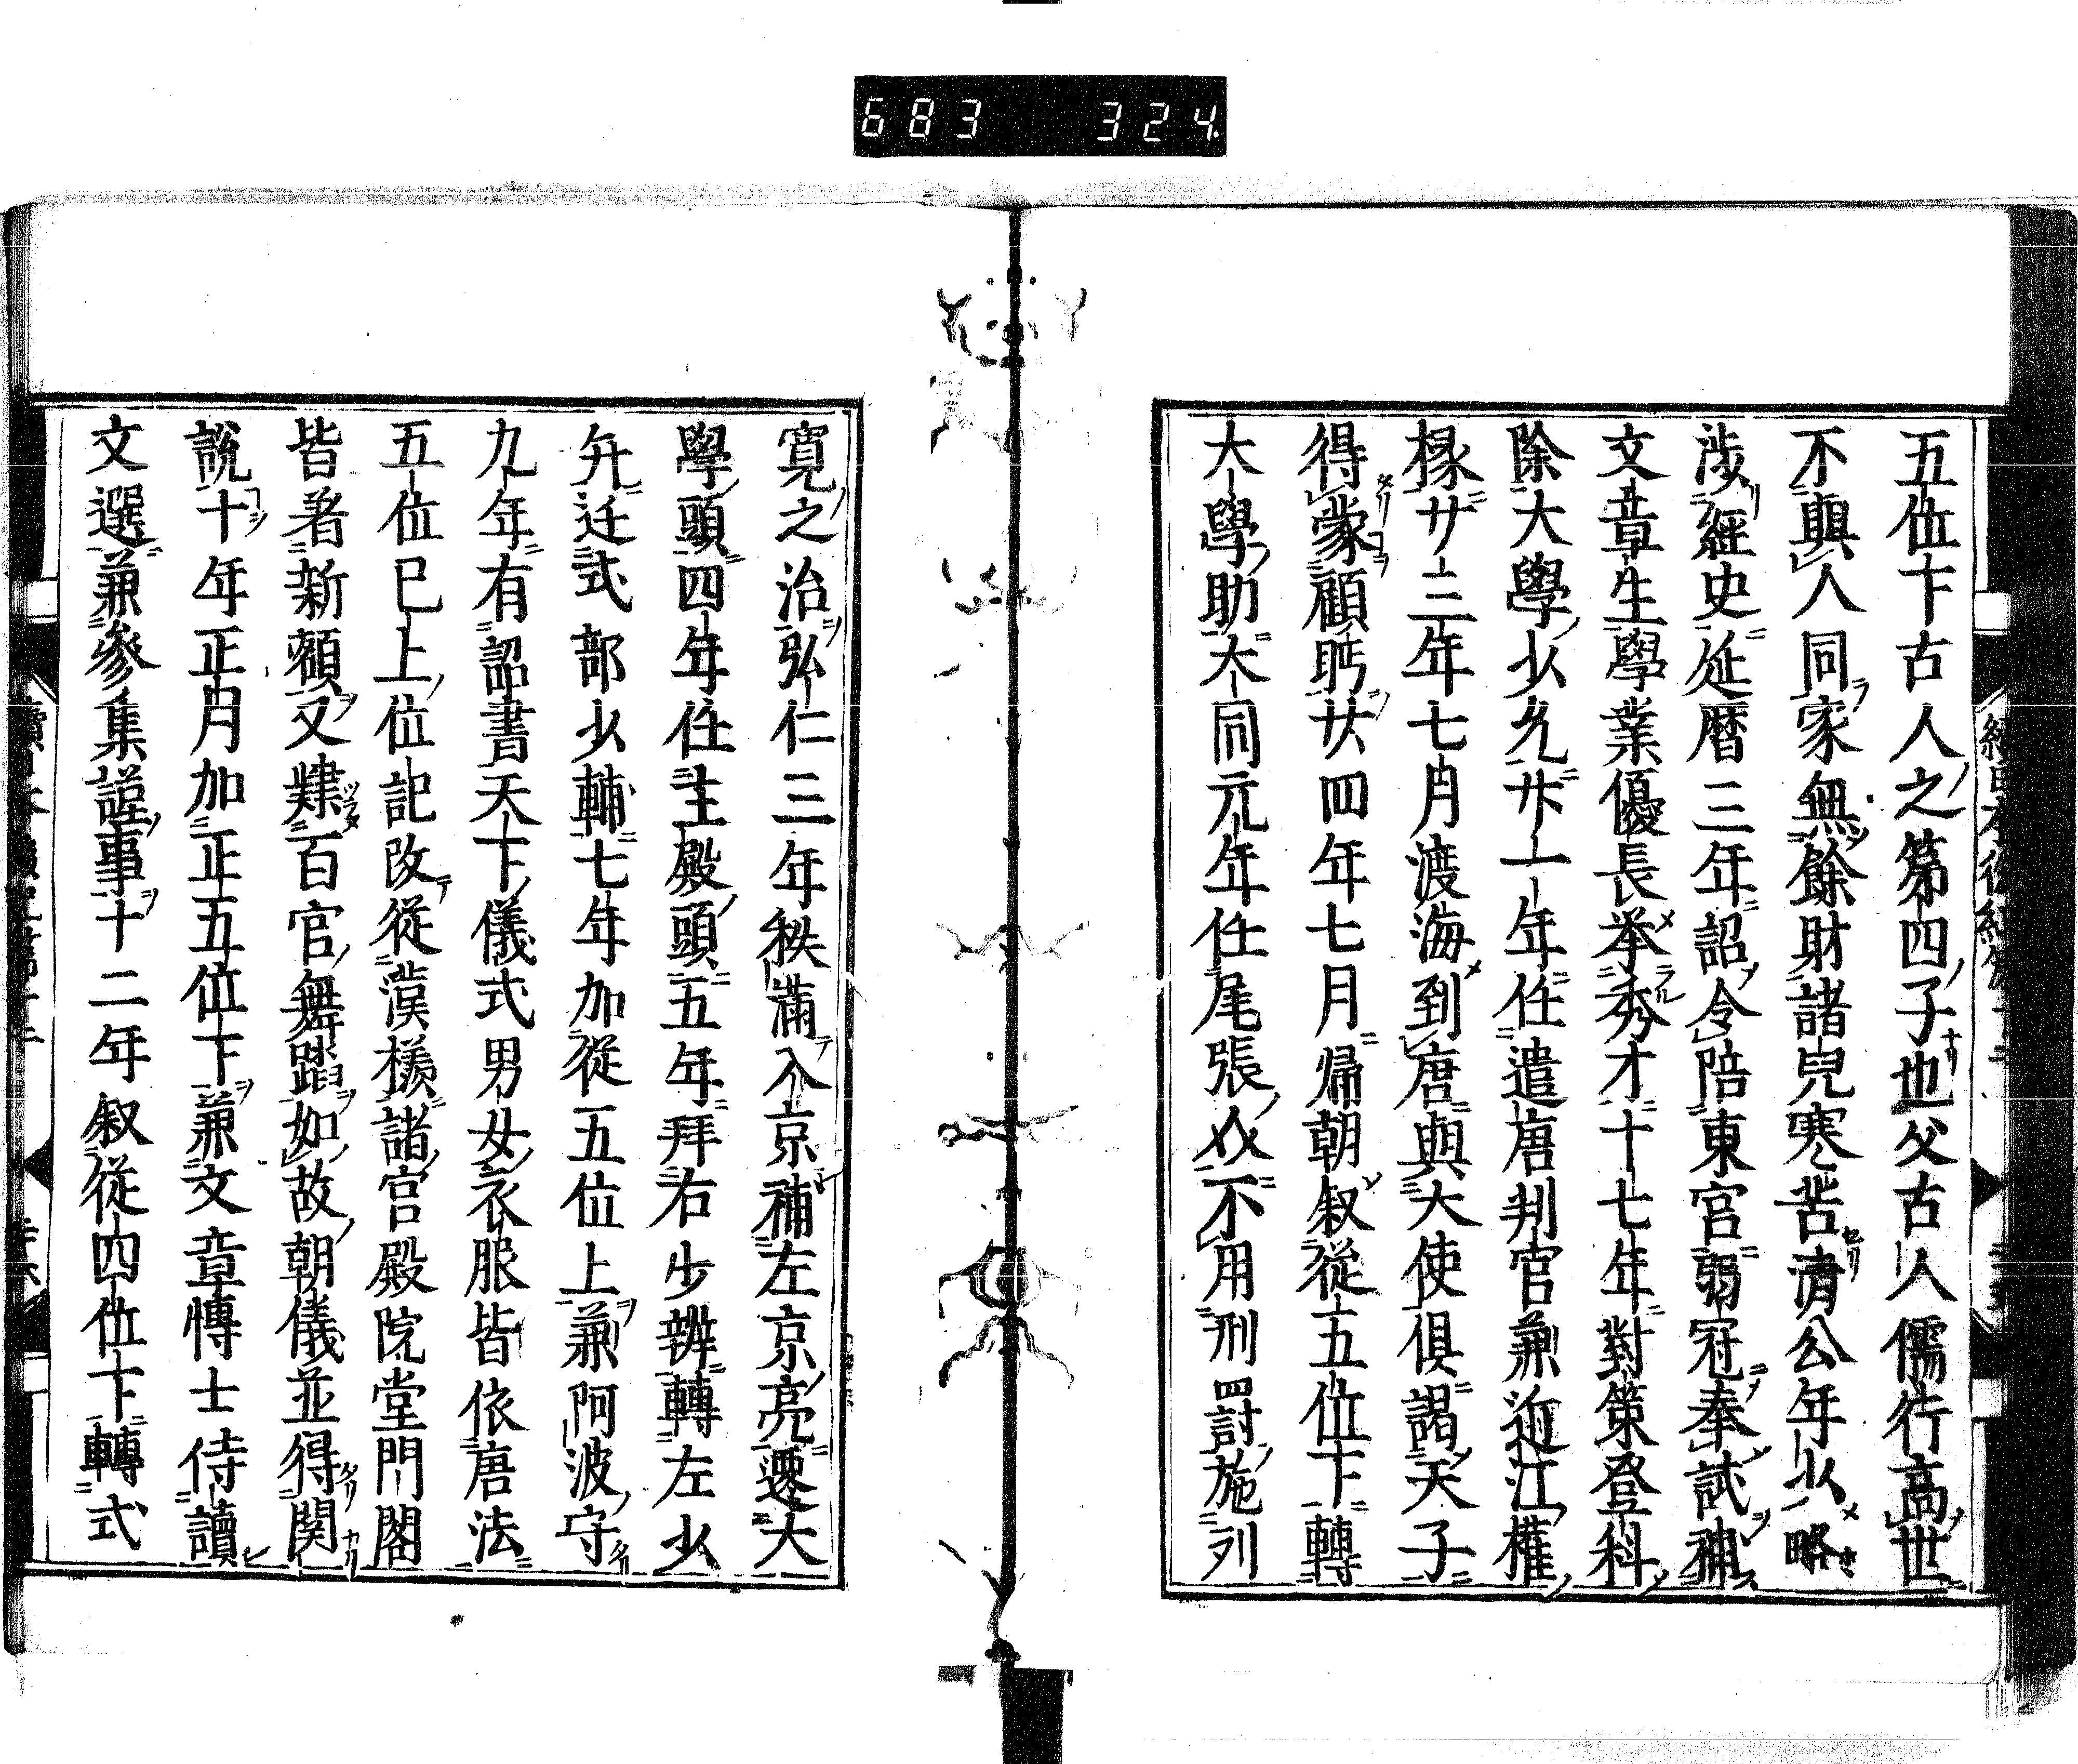 683 324
五位下古人之第四子也父古人儒行高世
不與人同家無餘財諸兒寒苦清公年少略
渉經史延暦三年詔令陪東宮弱冠奉試補
文章生學業優長挙秀才十七年對策登科
除大學少允廾一年任遣唐判官兼近江權
掾廾三年七月渡海到唐與大使俱謁天子
得蒙顧眄廿四年七月歸朝叙從五位下轉
大學助大同元年任尾張介不用刑罰施列
寛之治弘仁三年秩滿入京補左京亮遷大
學頭四年任主殿頭五年拜右少辨轉左少
弁迁式部少輔七年加從五位上兼阿波守
九年有詔書天下儀式男女衣服皆依唐法
五位已上位記改從漢樣諸宮殿院堂門閣
皆著新額又肄百官舞蹈如故朝儀並得関
說十年正月加正五位下兼文章博士侍讀
文選兼參集議事十二年叙從四位下轉式